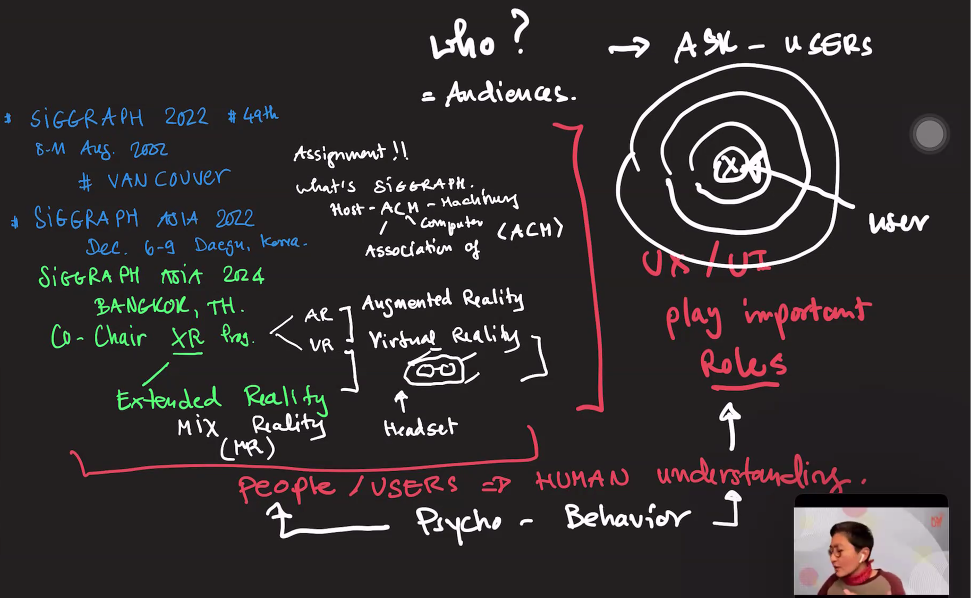 who?
→ ASK - USERS
= Audiences.
* SiGGRAPH 2022 # 49th
8-11 Aug. 2022
# VANCOUVER
* SiGGRAPH ASIA 2022
Dec. 6-9 Daegu, Korea.
SiGGRAPH ASIA 2024
BANGKOK, TH.
Co-Chair XR Prog.
Extended Reality
Mix Reality
(MR)
Assignment!!
what's SiGGRAPH.
Host - ACM - Machinery
Computer
Association of (ACM)
AR
VR
Augmented Reality
Virtual Reality
Headset
X
user
UX / UI
play important
Roles
PEOPLE / USERS ⇒ HUMAN understanding.
Psycho - Behavior